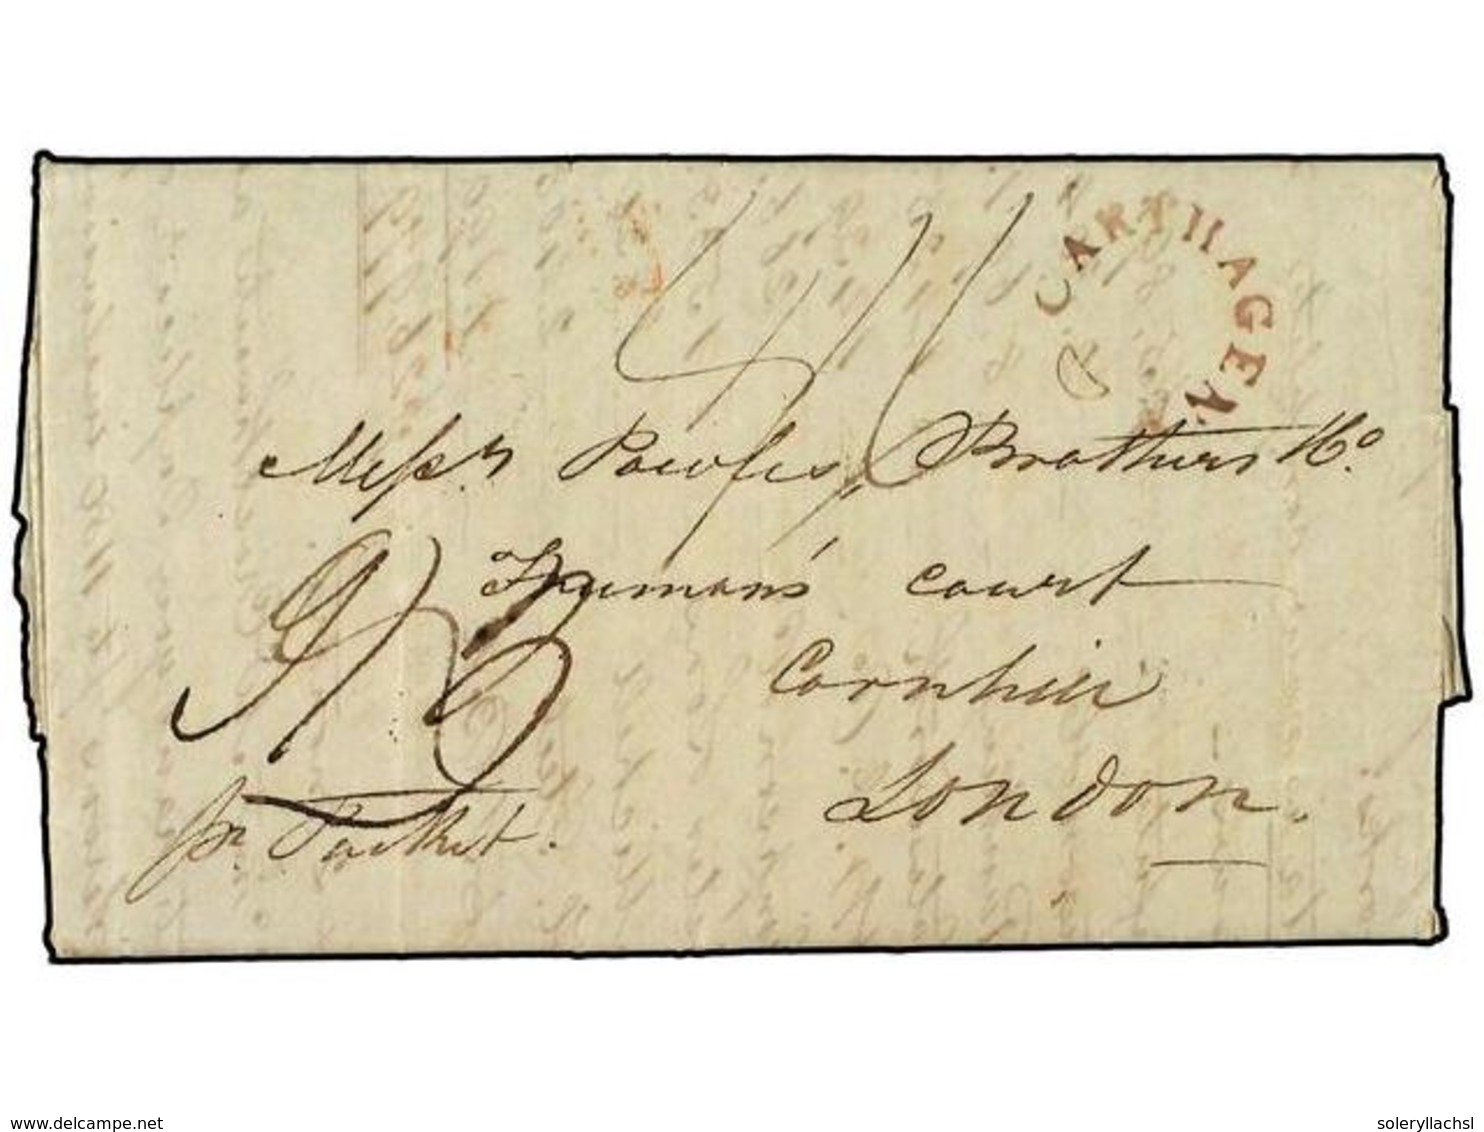 CARTHAGENA
Messrs Powles, Brothers & Co.
Freeman's Court
Cornhill
London.
pr. Packet.
delcampe.net
soleryllachsl